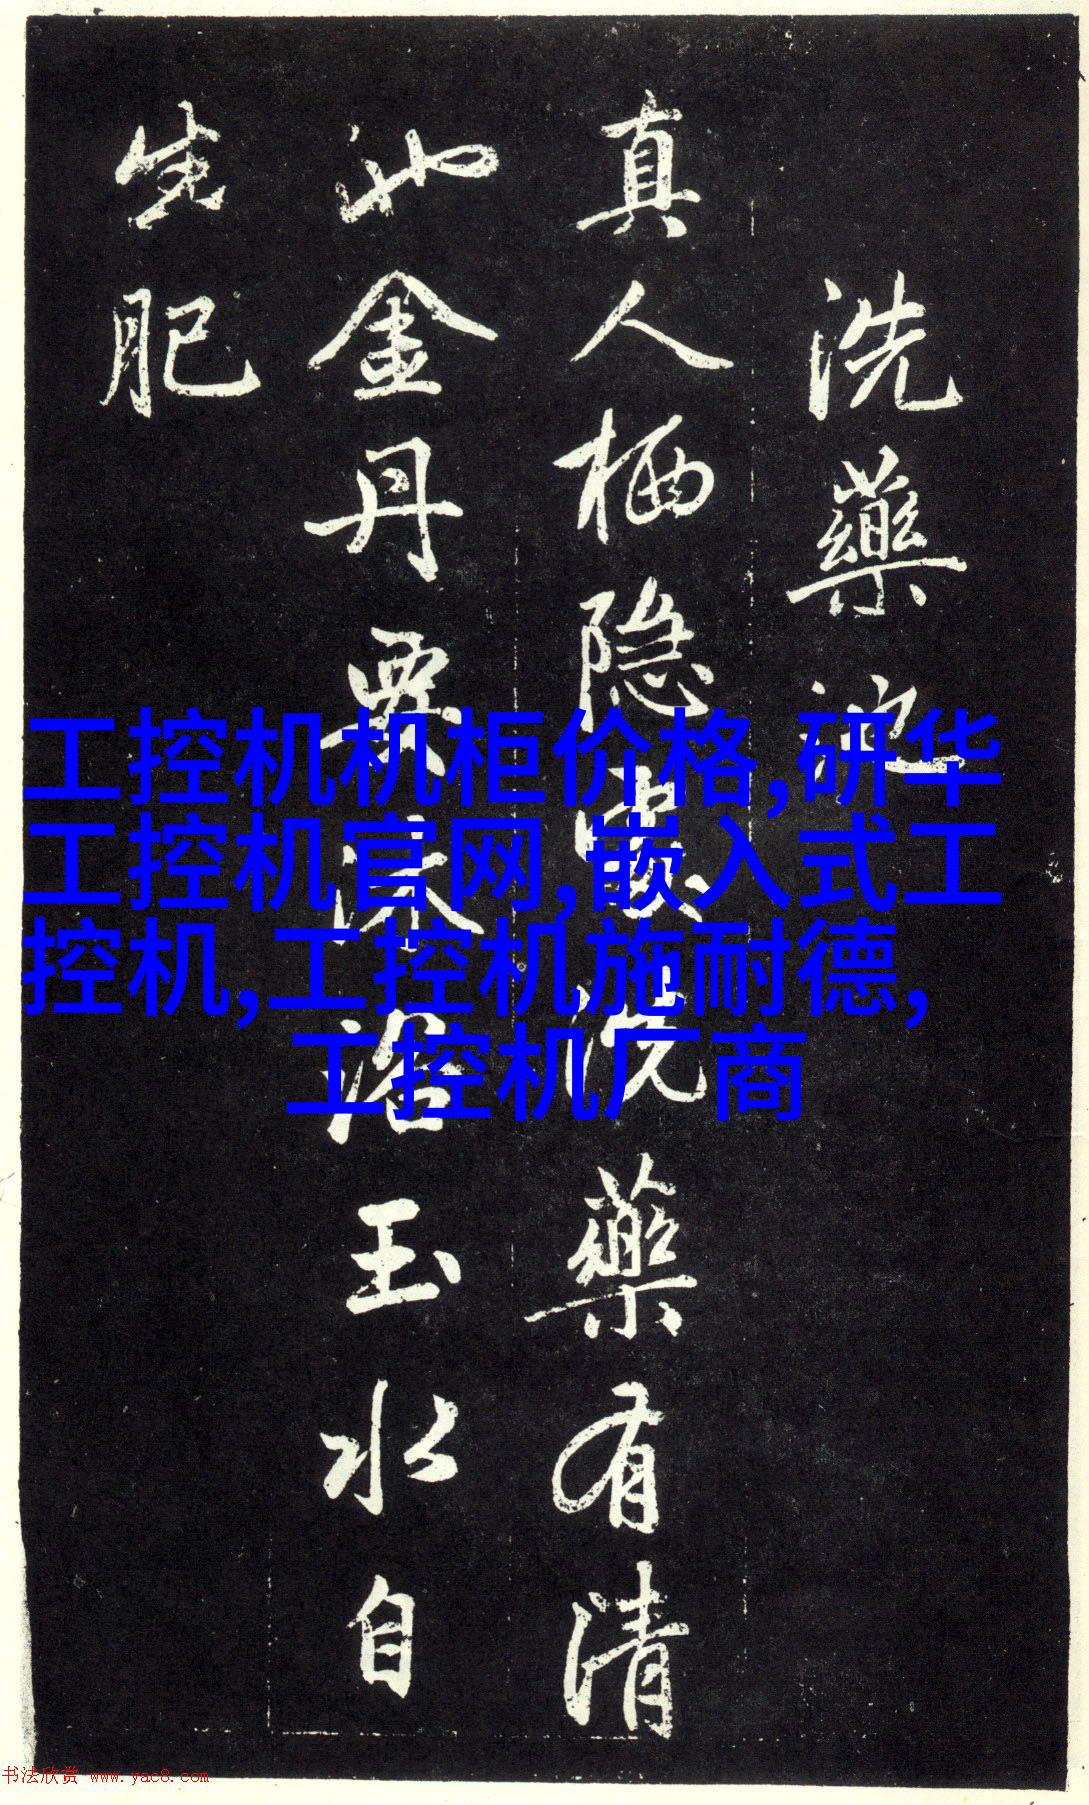 洗藥池
真人栖隐處洗藥有清
池金丹要沐浴玉水自
生肥
工控机机柜价格,研华
工控机官网,嵌入式工
控机,工控机施耐德,
工控机厂商
书法欣赏 www.yac8.com